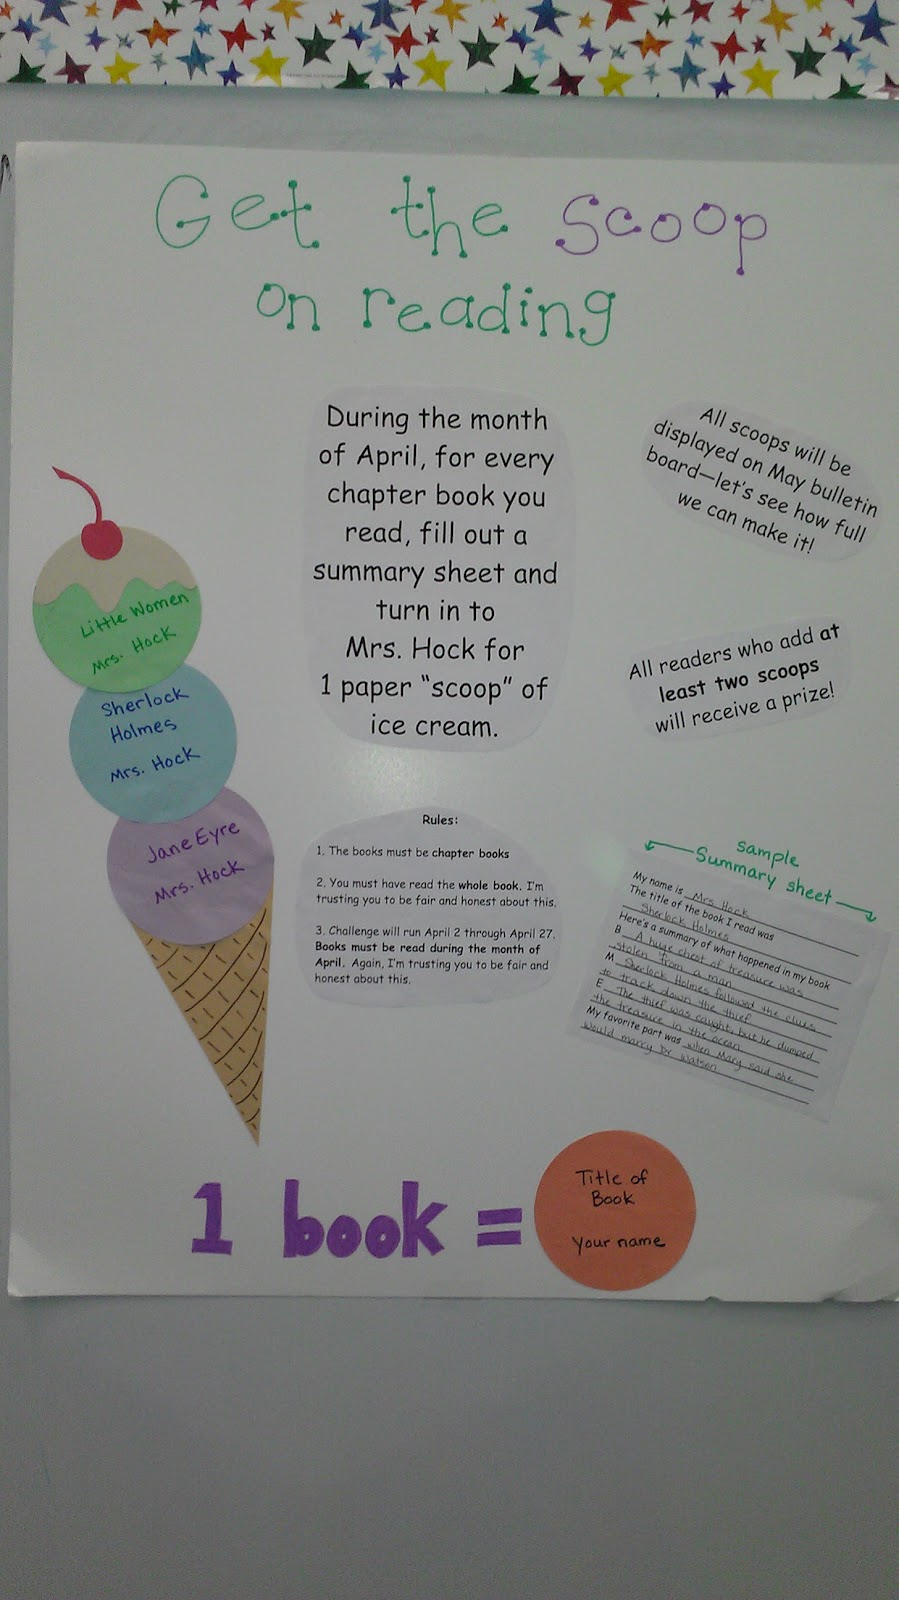 Get the Scoop
on reading
During the month
of April, for every
chapter book you
read, fill out a
summary sheet and
turn in to
Mrs. Hock for
1 paper “scoop” of
ice cream.
All scoops will be
displayed on May bulletin
board—let's see how full
we can make it!
All readers who add at
least two scoops
will receive a prize!
Little Women
Mrs. Hock
Sherlock
Holmes
Mrs. Hock
Jane Eyre
Mrs. Hock
Rules:
1. The books must be chapter books
2. You must have read the whole book. I'm
trusting you to be fair and honest about this.
3. Challenge will run April 2 through April 27.
Books must be read during the month of
April. Again, I'm trusting you to be fair and
honest about this.
sample
Summary sheet
My name is Mrs. Hock
The title of the book I read was
Sherlock Holmes
Here's a summary of what happened in my book
B A huge chest of treasure was
stolen from a man
M Sherlock Holmes followed the clues
to track down the thief
E The thief was caught, but he dumped
the treasure in the ocean
My favorite part was when Mary said she
would marry Dr Watson
1 book =
Title of
Book
Your name